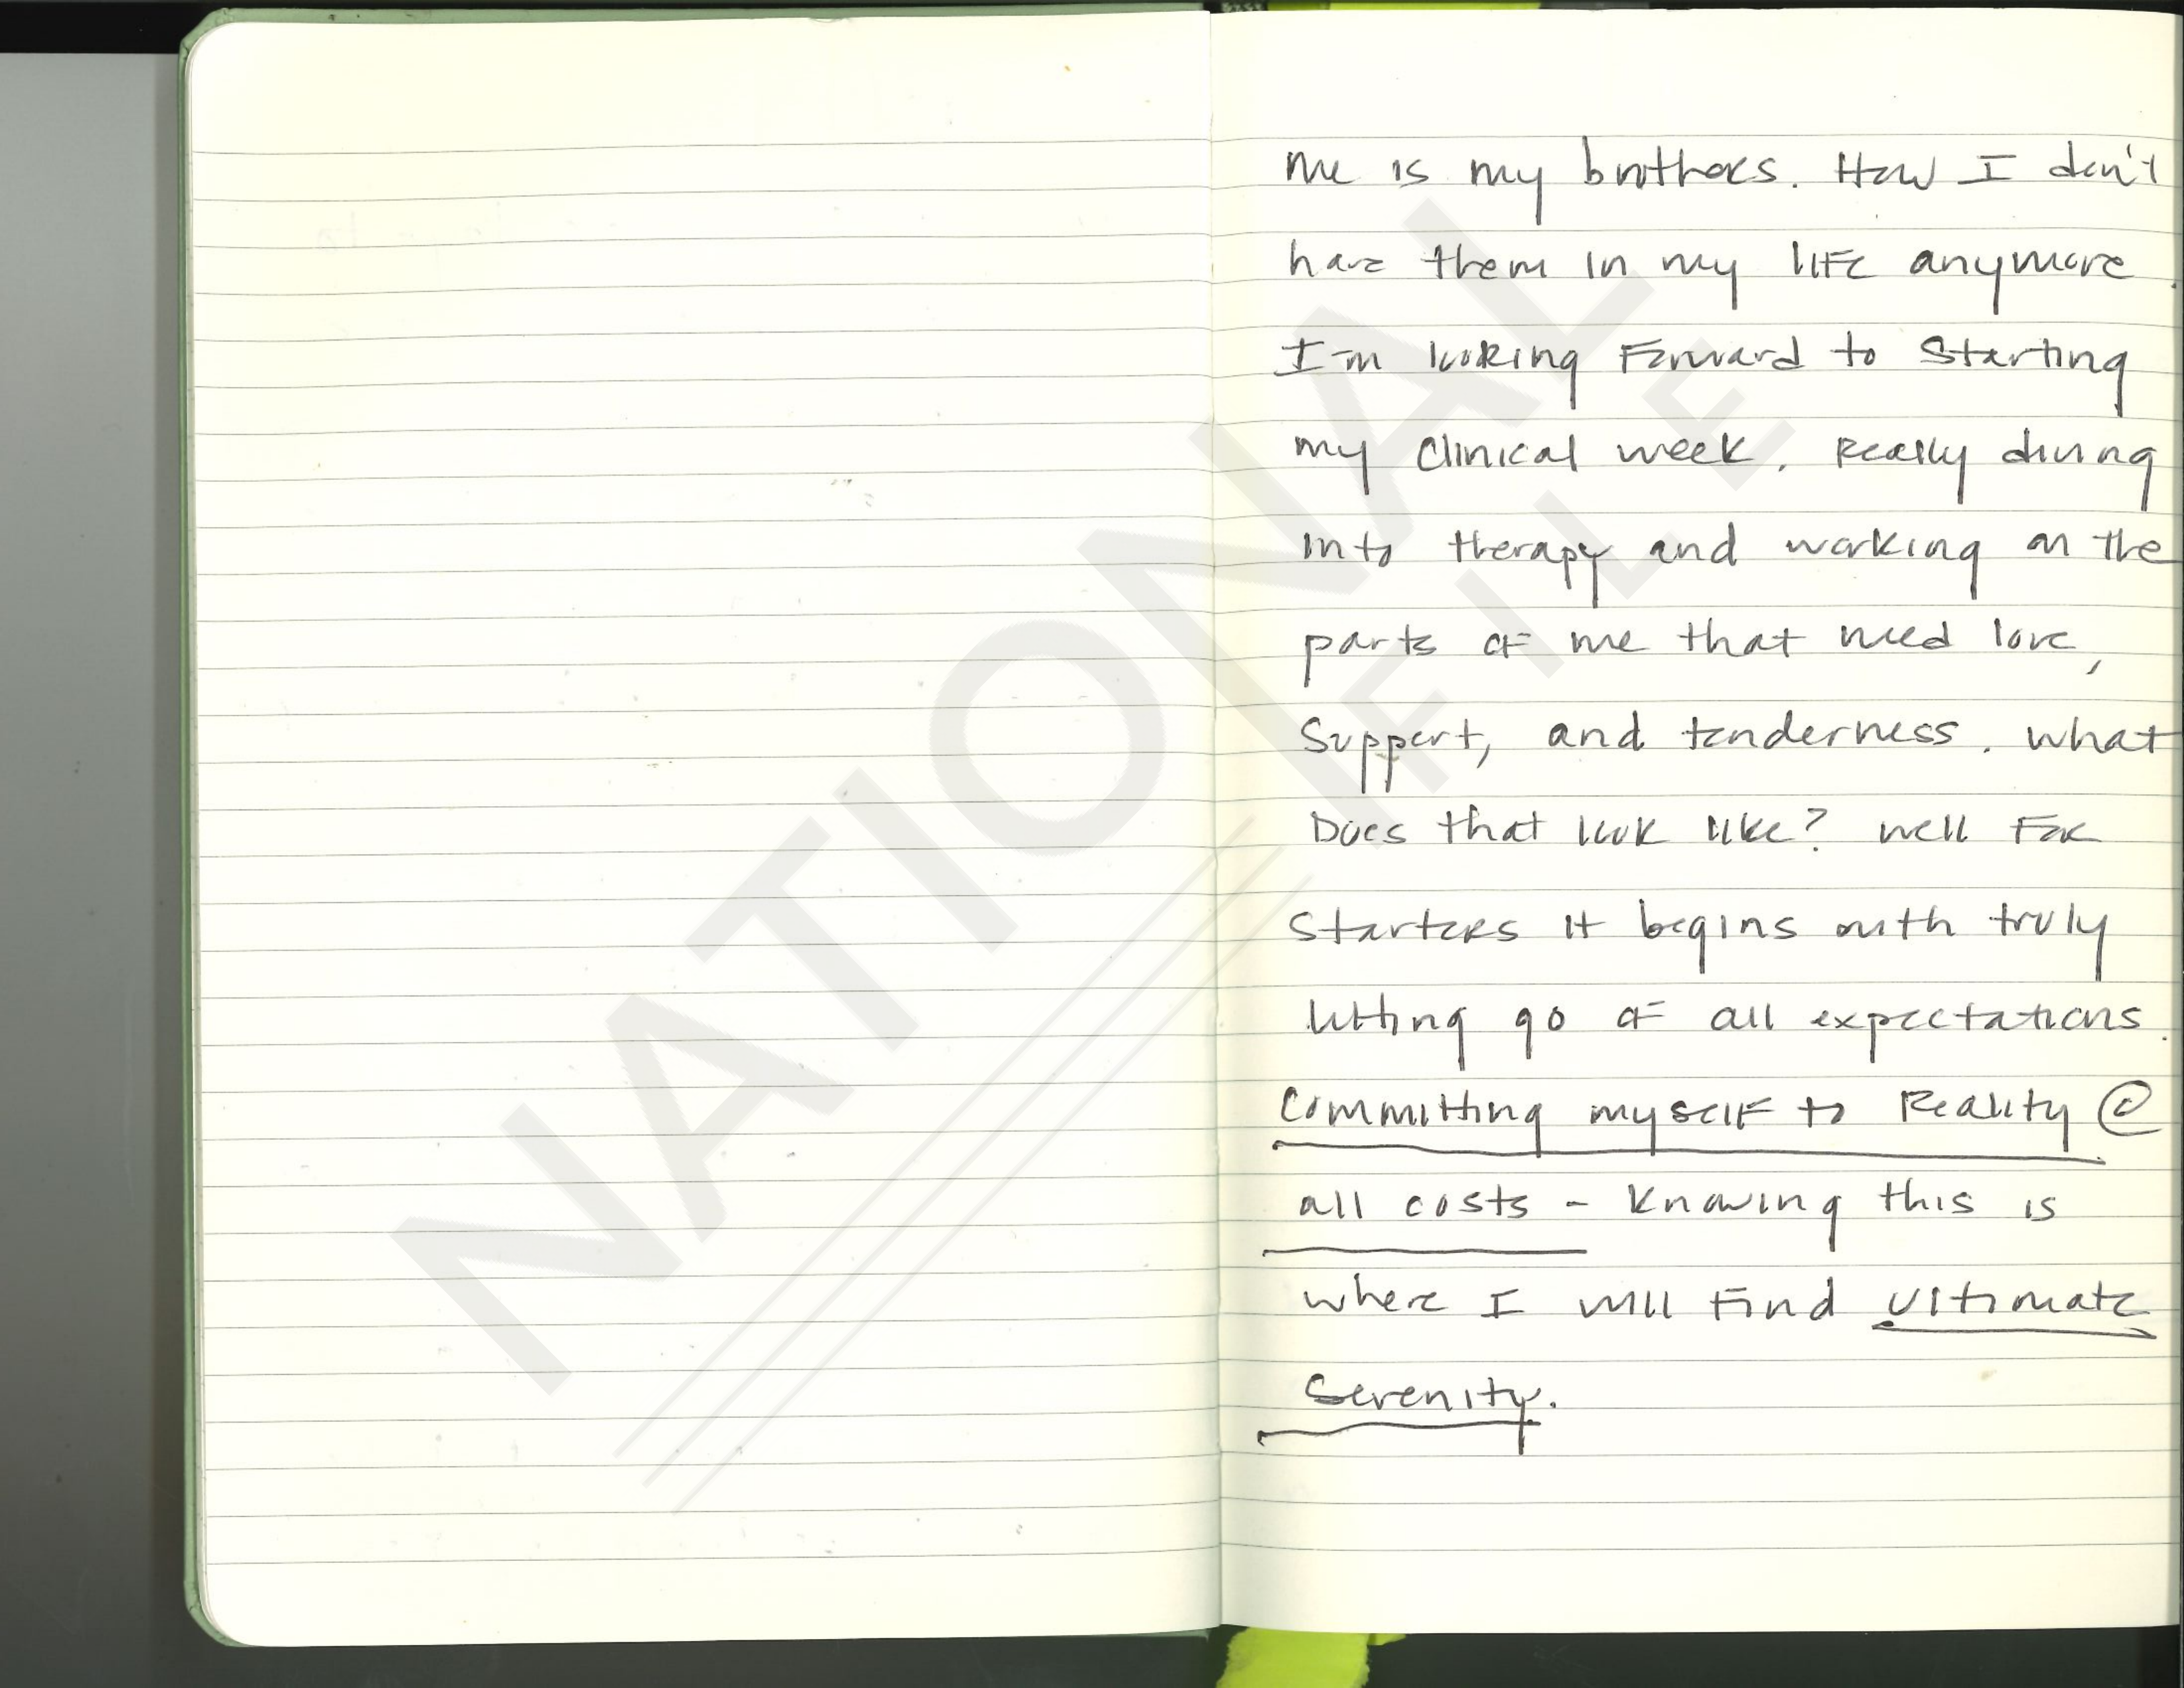 me is my brothers. How I don't
have them in my life anymore.
I'm looking Forward to Starting
my clinical week. Really diving
into therapy and working on the
parts of me that need love,
Support, and tenderness. What
Does that look like? Well For
Starters it begins with truly
letting go of all expectations.
Committing myself to Reality @
all costs - Knowing this is
where I will find ultimate
Serenity.
NATIONAL
FILE